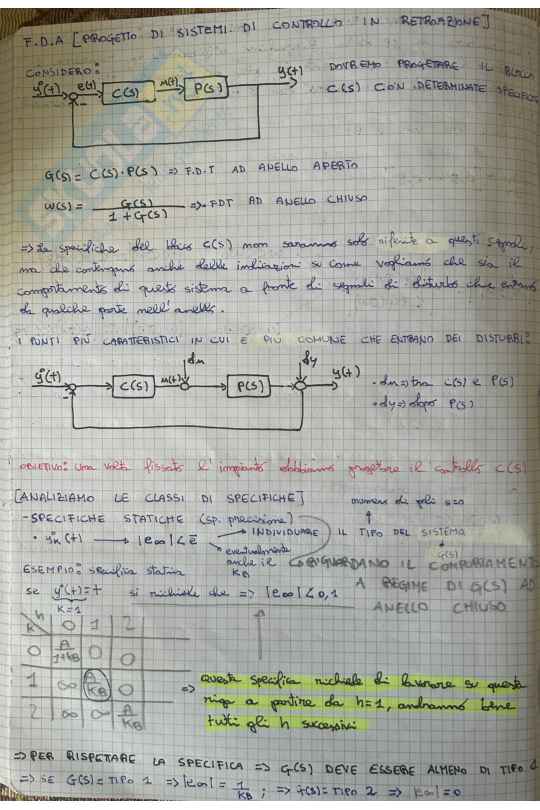 F.D.A [PROGETTO DI SISTEMI DI CONTROLLO IN RETROAZIONE]
CONSIDERO:
y°(t) e(t) C(s) u(t) P(s) y(t)
-
DOVREMO PROGETARE IL BLOCCO
C(s) CON DETERMINATE SPECIFICHE
G(s) = C(s)·P(s) => F.D.T AD ANELLO APERTO
W(s) = G(s) / 1 + G(s) => FDT AD ANELLO CHIUSO
=> Le specifiche del blocco C(s) non saranno solo riferite a questi segnali,
ma che contengano anche delle indicazioni su come vogliamo che sia il
comportamento di questo sistema a fronte di segnali di disturbo che entrano
da qualche parte nell'anello.
I PUNTI PIÙ CARATTERISTICI IN CUI È PIÙ COMUNE CHE ENTRANO DEI DISTURBI:
du dy
y°(t) C(s) u(t) P(s) y(t)
-
• du => tra C(s) e P(s)
• dy => dopo P(s)
OBIETTIVO: una volta fissato l'impianto dobbiamo progettare il controllo C(s)
[ANALIZIAMO LE CLASSI DI SPECIFICHE]
numero di poli s=0
- SPECIFICHE STATICHE (sp. precisione)
• y°k(t) → |e∞| < ē → INDIVIDUARE IL TIPO DEL SISTEMA
G(s)
eventualmente
anche il KB
RIGUARDANO IL COMPORTAMENTO
A REGIME DI G(s) AD
ANELLO CHIUSO
ESEMPIO: specifica statica
se y°(t) = t si richiede che => |e∞| < 0,1
K=1
K h 0 1 2
0 A/1+KB 0 0
1 ∞ A/KB 0
2 ∞ ∞ A/KB
=> Questa specifica richiede di lavorare su questa
riga a partire da h=1, andranno bene
tutti gli h successivi
=> PER RISPETARE LA SPECIFICA => G(s) DEVE ESSERE ALMENO DI TIPO 1
=> SE G(s) = TIPO 1 => |e∞| = 1/KB ; => G(s) = TIPO 2 => |e∞| = 0